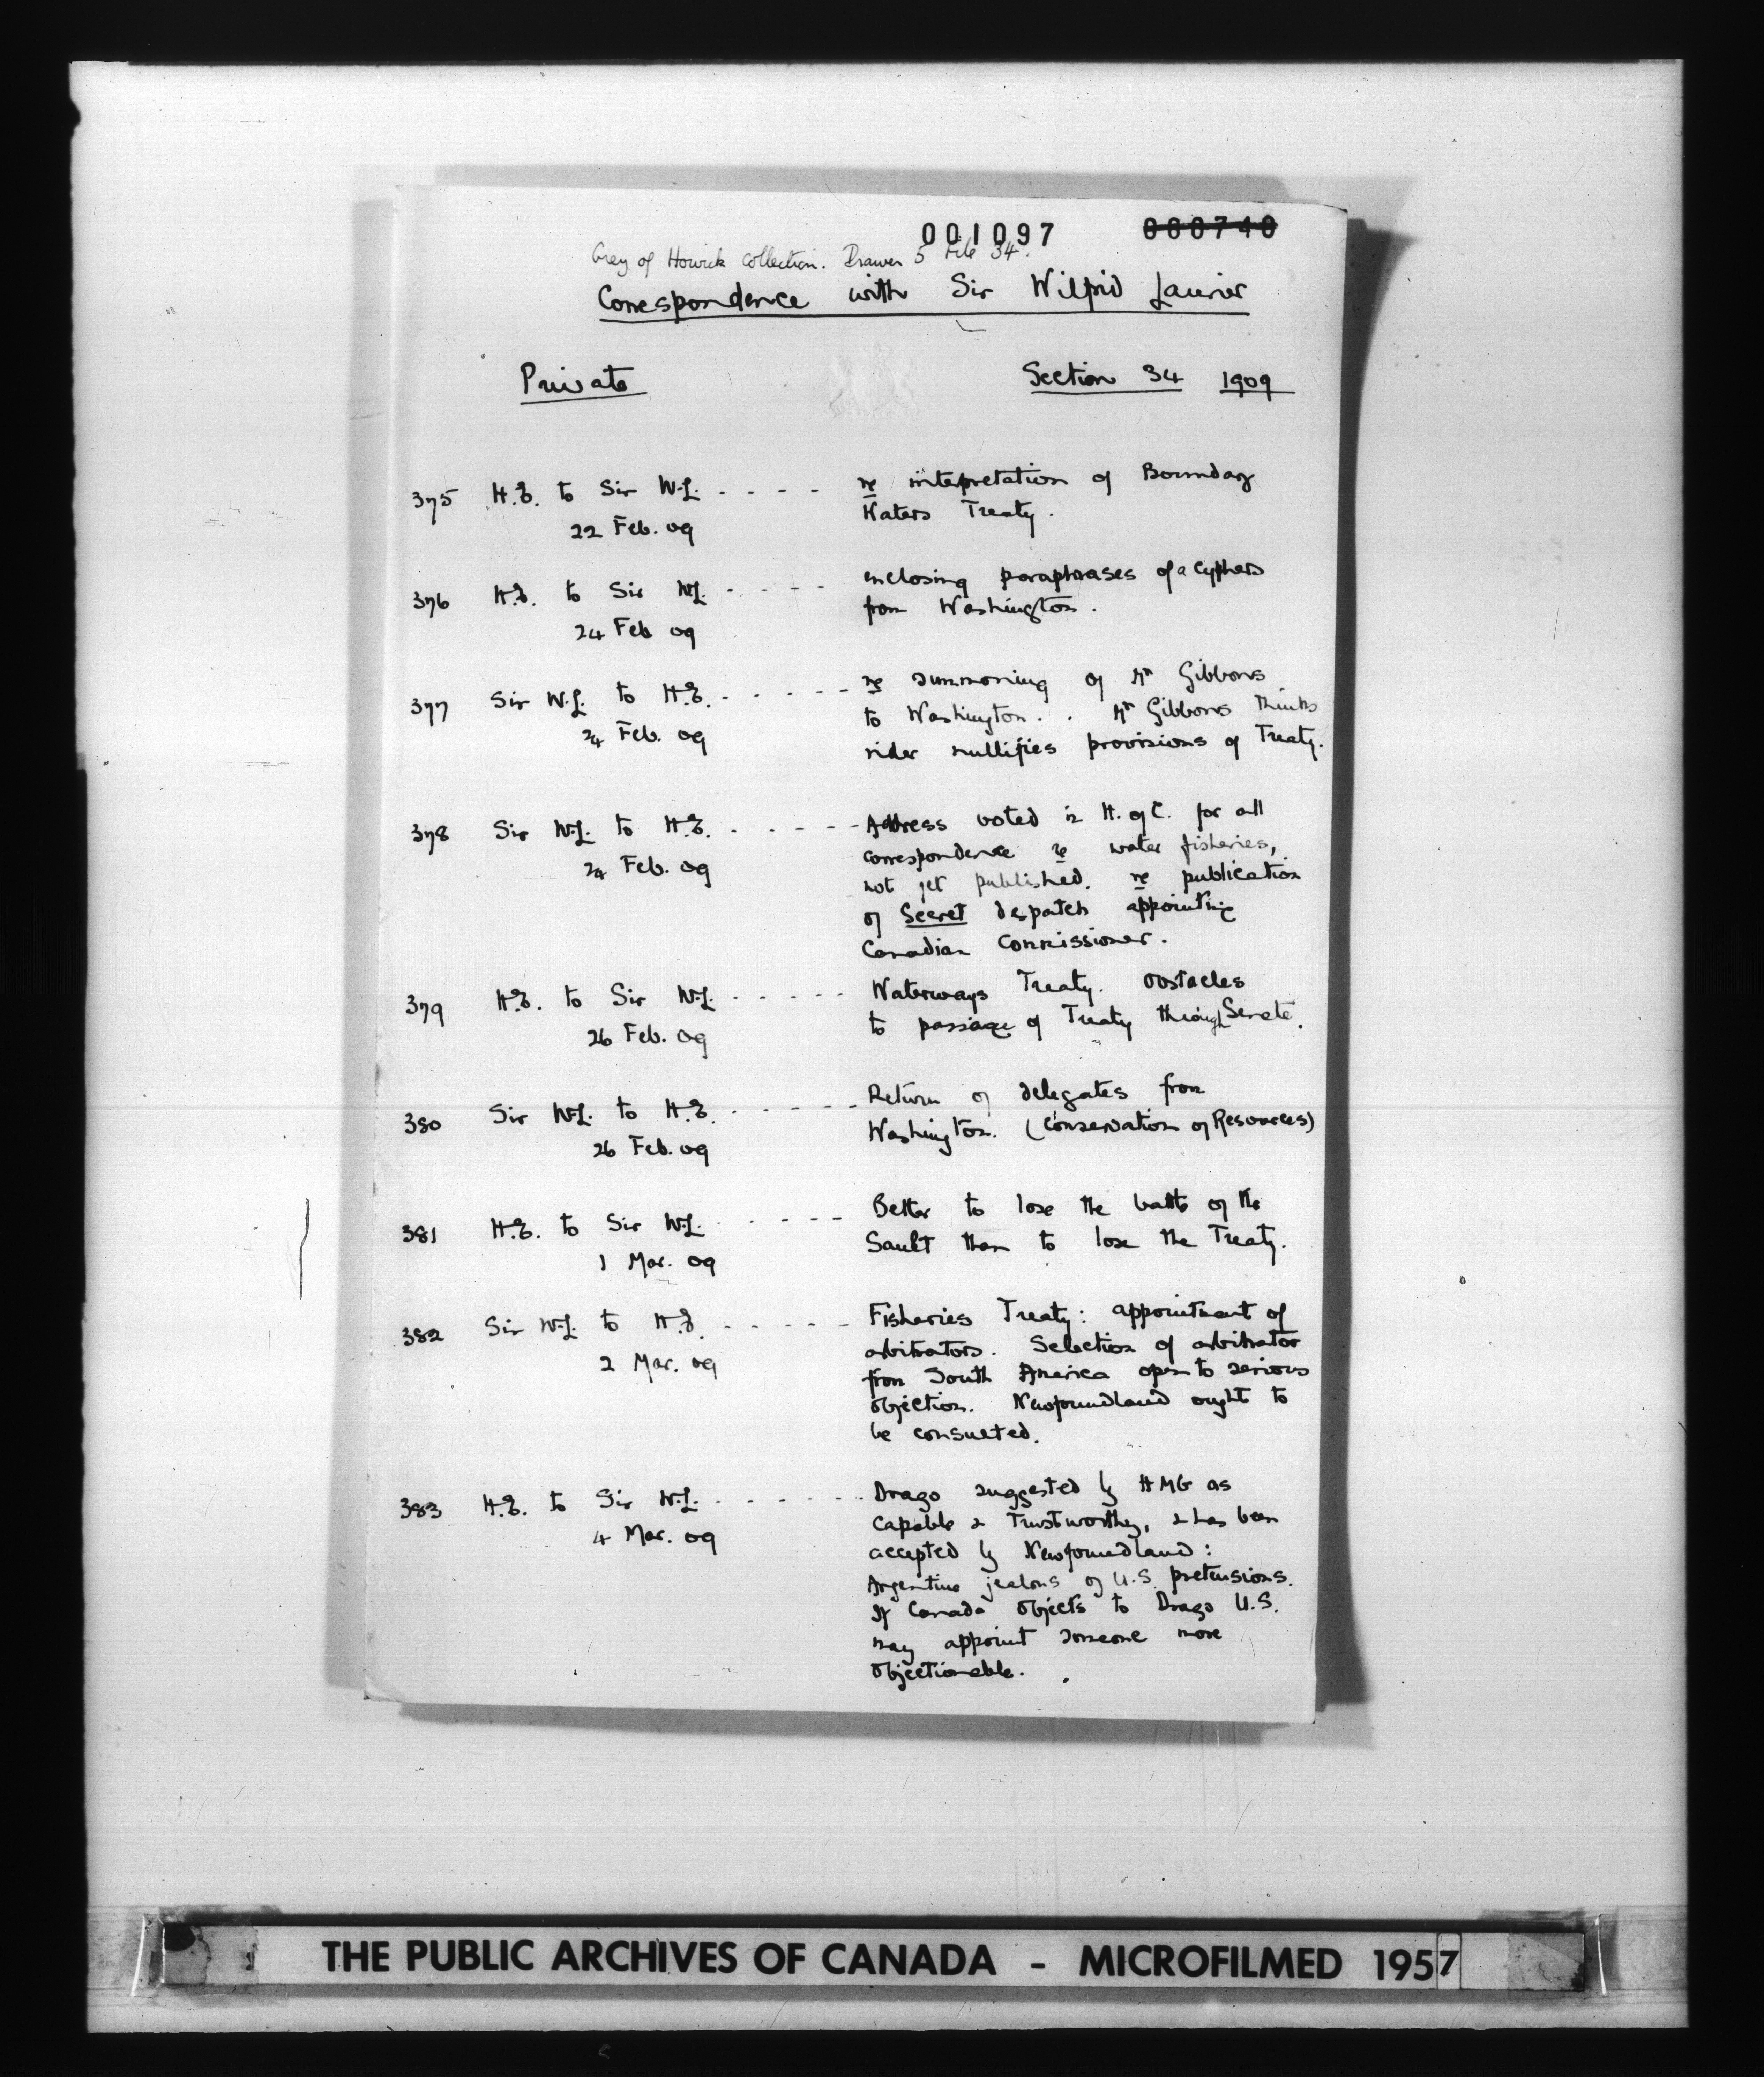 001097 000740
Grey of Howick Collection. Drawer 5 File 34.
Correspondence with Sir Wilfrid Laurier
Private Section 34 1909
375 H.E. to Sir W.L. - - - - re interpretation of Boundary
Waters Treaty.
22 Feb. 09
376 H.E. to Sir W.L. - - - - enclosing paraphrases of a cyphers
from Washington.
24 Feb 09
377 Sir W.L. to H.E. - - - - - re summoning of Mr Gibbons
to Washington. . Mr Gibbons thinks
24 Feb. 09
rider nullifies provisions of Treaty.
378 Sir W.L. to H.E. - - - - - Address voted in H. of C. for all
correspondence re water fisheries,
24 Feb. 09
not yet published. re publication
of Secret despatch appointing
Canadian Commissioner.
379 H.E. to Sir W.L. - - - - - Waterways Treaty. Obstacles
to passage of Treaty through Senate.
26 Feb. 09
380 Sir W.L. to H.E. - - - - - Return of delegates from
Washington. (Conservation of Resources)
26 Feb. 09
381 H.E. to Sir W.L. - - - - - Better to lose the battle of the
Sault than to lose the Treaty.
1 Mar. 09
382 Sir W.L. to H.E. - - - - - Fisheries Treaty: appointment of
arbitrators. Selection of arbitrator
2 Mar. 09
from South America open to serious
objection. Newfoundland ought to
be consulted.
383 H.E. to Sir W.L. - - - - - - Drago suggested by HMG as
capable & trustworthy, & has been
4 Mar. 09
accepted by Newfoundland:
Argentine jealous of U.S. pretensions.
If Canada objects to Drago U.S.
may appoint someone more
objectionable.
THE PUBLIC ARCHIVES OF CANADA - MICROFILMED 1957